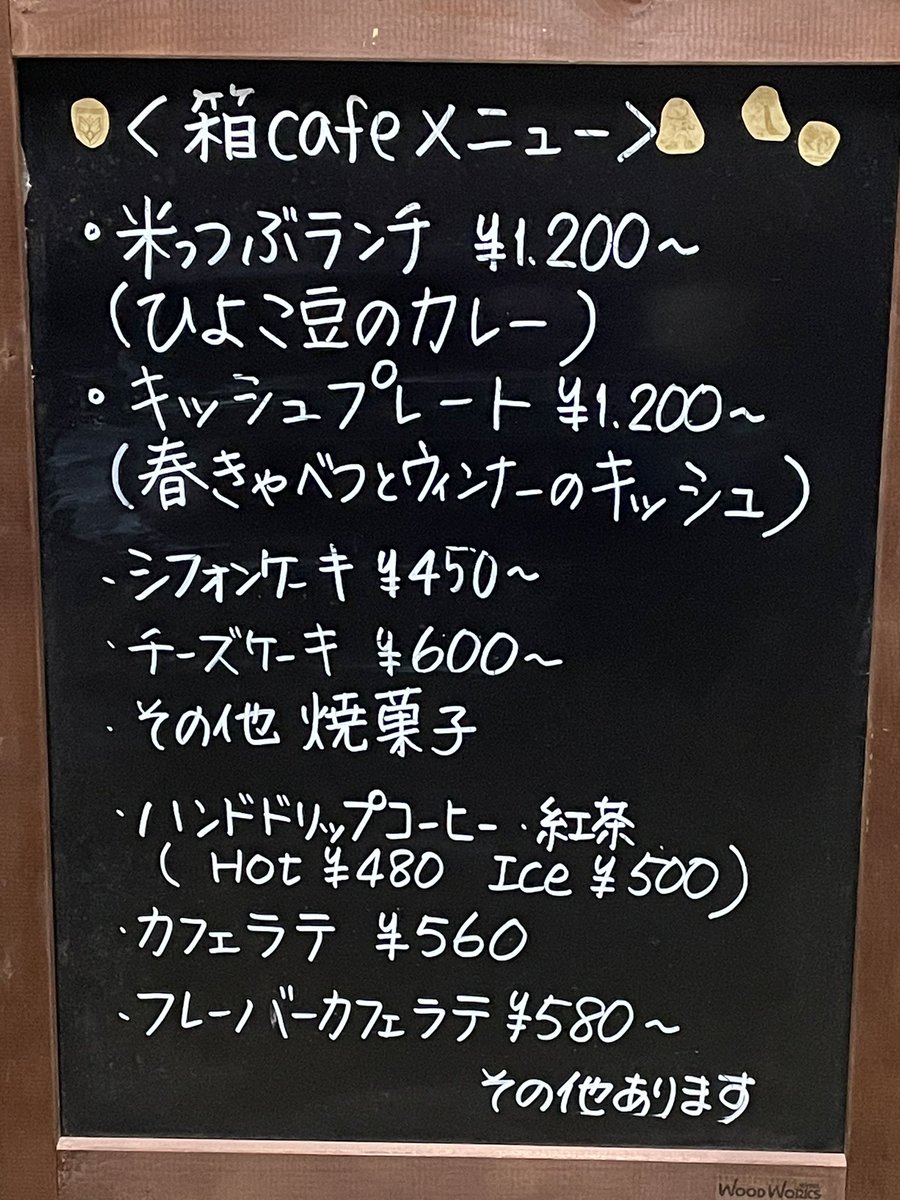 <箱cafeメニュー>
・米っつぶランチ ¥1.200~
(ひよこ豆のカレー)
・キッシュプレート ¥1.200~
(春きゃべつとウィンナーのキッシュ)
・シフォンケーキ ¥450~
・チーズケーキ ¥600~
・その他 焼菓子
・ハンドドリップコーヒー・紅茶
(Hot ¥480 Ice ¥500)
・カフェラテ ¥560
・フレーバーカフェラテ ¥580~
その他あります
WOODWORKS